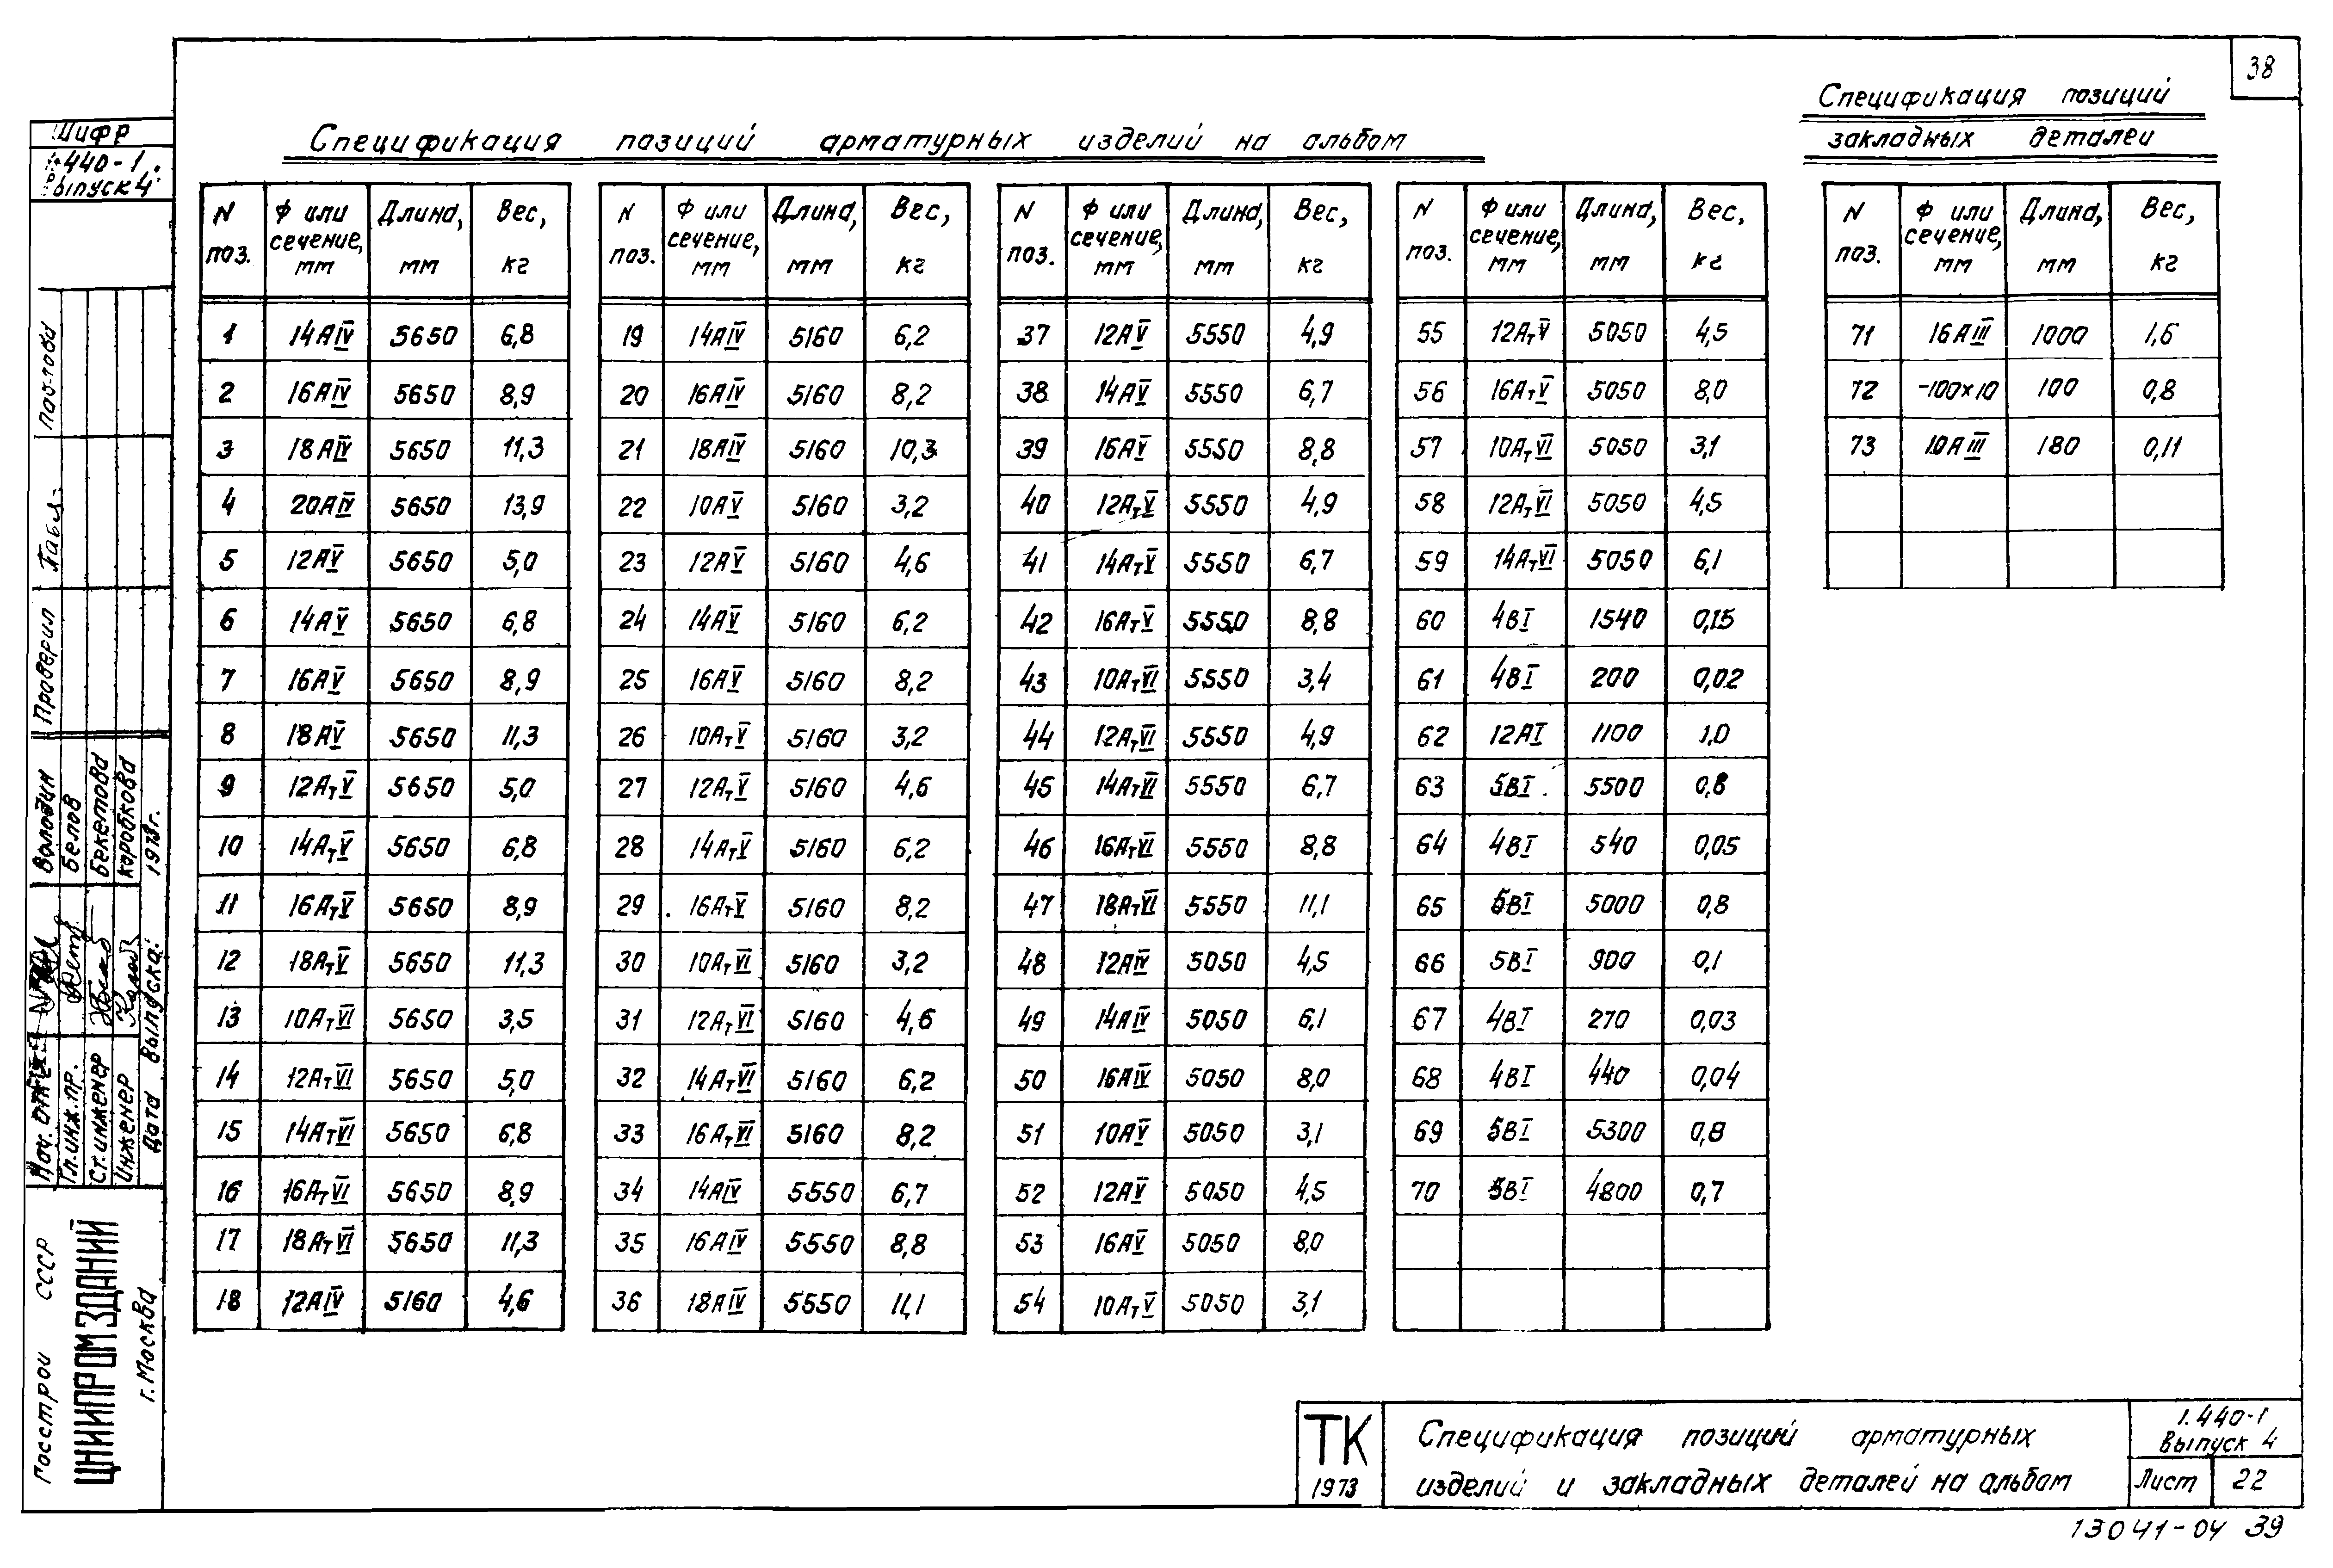 38
Спецификация позиций арматурных изделий на альбом
N поз. Ф или сечение, мм Длина, мм Вес, кг
1 14АIV 5650 6,8
2 16АIV 5650 8,9
3 18АIV 5650 11,3
4 20АIV 5650 13,9
5 12АV 5650 5,0
6 14АV 5650 6,8
7 16АV 5650 8,9
8 18АV 5650 11,3
9 12АтV 5650 5,0
10 14АтV 5650 6,8
11 16АтV 5650 8,9
12 18АтV 5650 11,3
13 10АтVI 5650 3,5
14 12АтVI 5650 5,0
15 14АтVI 5650 6,8
16 16АтVI 5650 8,9
17 18АтVI 5650 11,3
18 12АIV 5160 4,6
N поз. Ф или сечение, мм Длина, мм Вес, кг
19 14АIV 5160 6,2
20 16АIV 5160 8,2
21 18АIV 5160 10,3
22 10АV 5160 3,2
23 12АV 5160 4,6
24 14АV 5160 6,2
25 16АV 5160 8,2
26 10АтV 5160 3,2
27 12АтV 5160 4,6
28 14АтV 5160 6,2
29 16АтV 5160 8,2
30 10АтVI 5160 3,2
31 12АтVI 5160 4,6
32 14АтVI 5160 6,2
33 16АтVI 5160 8,2
34 14АIV 5550 6,7
35 16АIV 5550 8,8
36 18АIV 5550 11,1
N поз. Ф или сечение, мм Длина, мм Вес, кг
37 12АV 5550 4,9
38 14АV 5550 6,7
39 16АV 5550 8,8
40 12АтV 5550 4,9
41 14АтV 5550 6,7
42 16АтV 5550 8,8
43 10АтVI 5550 3,4
44 12АтVI 5550 4,9
45 14АтVI 5550 6,7
46 16АтVI 5550 8,8
47 18АтVI 5550 11,1
48 12АIV 5050 4,5
49 14АIV 5050 6,1
50 16АIV 5050 8,0
51 10АV 5050 3,1
52 12АV 5050 4,5
53 16АV 5050 8,0
54 10АтV 5050 3,1
N поз. Ф или сечение, мм Длина, мм Вес, кг
55 12АтV 5050 4,5
56 16АтV 5050 8,0
57 10АтVI 5050 3,1
58 12АтVI 5050 4,5
59 14АтVI 5050 6,1
60 4ВI 1540 0,15
61 4ВI 200 0,02
62 12АI 1100 1,0
63 5ВI 5500 0,8
64 4ВI 540 0,05
65 5ВI 5000 0,8
66 5ВI 900 0,1
67 4ВI 270 0,03
68 4ВI 440 0,04
69 5ВI 5300 0,8
70 5ВI 4800 0,7
Спецификация позиций
закладных деталей
N поз. Ф или сечение, мм Длина, мм Вес, кг
71 16АIII 1000 1,6
72 -100×10 100 0,8
73 10АIII 180 0,11
Шифр
440-1
выпуск 4
Проверил
Нач. отд.
Володин
Гл. инж. пр.
Белов
Ст. инженер
Бекетова
Инженер
Коробкова
Дата выпуска: 1973г.
Госстрой СССР
ЦНИИПРОМЗДАНИЙ
г. Москва
ТК
1973
Спецификация позиций арматурных
изделий и закладных деталей на альбом
1.440-1
Выпуск 4
Лист 22
13041-04 39